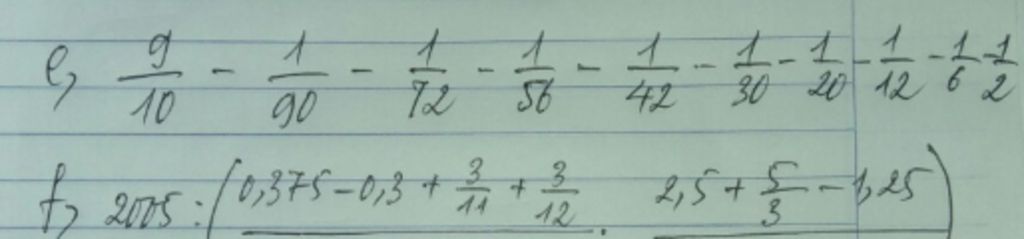 e, 9/10 - 1/90 - 1/72 - 1/56 - 1/42 - 1/30 - 1/20 - 1/12 - 1/6 - 1/2
f, 2005 : ( 0,375 - 0,3 + 3/11 + 3/12 . 2,5 + 5/3 - 1,25 )